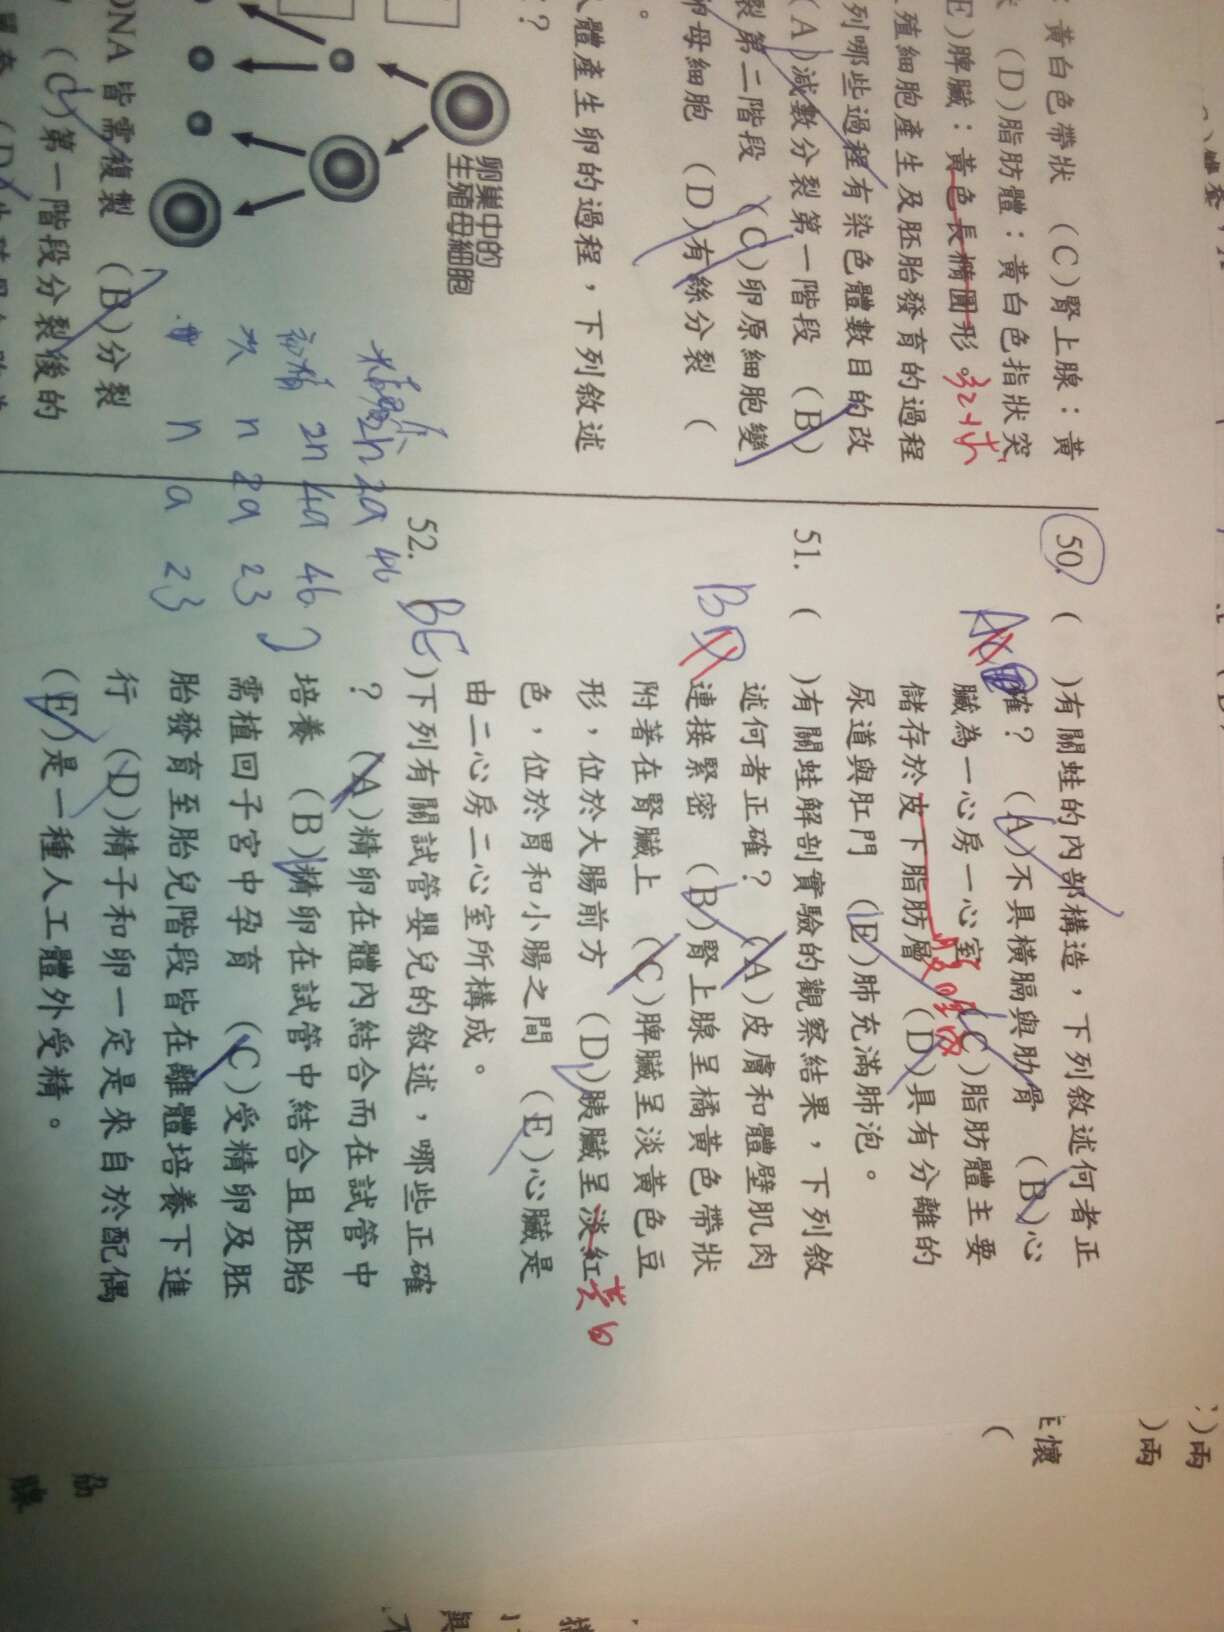 ：黃白色帶狀 (C)腎上腺：黃
(D)脂肪體：黃白色指狀突
E)脾臟：黃色長橢圓形。
殖細胞產生及胚胎發育的過程
列哪些過程有染色體數目的改
(A)減數分裂第一階段 (B)
裂第二階段 (C)卵原細胞變
母細胞 (D)有絲分裂 (
體產生卵的過程，下列敘述
？
卵巢中的
生殖母細胞
DNA 皆需複製 (B)分裂
(C)第一階段分裂後的
2n 2a 46
2n 4a 46
n 2a 23
n a 23
50. ( )有關蛙的內部構造，下列敘述何者正
確？ (A)不具橫膈與肋骨 (B)心
臟為一心房一心室 (C)脂肪體主要
儲存於皮下脂肪層 (D)具有分離的
尿道與肛門 (E)肺充滿肺泡。
51. ( )有關蛙解剖實驗的觀察結果，下列敘
述何者正確？ (A)皮膚和體壁肌肉
BD
連接緊密 (B)腎上腺呈橘黃色帶狀
附著在腎臟上 (C)脾臟呈淡黃色豆
形，位於大腸前方 (D)胰臟呈淡紅
黃白
色，位於胃和小腸之間 (E)心臟是
由二心房二心室所構成。
52. BE )下列有關試管嬰兒的敘述，哪些正確
？ (A)精卵在體內結合而在試管中
培養 (B)精卵在試管中結合且胚胎
需植回子宮中孕育 (C)受精卵及胚
胎發育至胎兒階段皆在離體培養下進
行 (D)精子和卵一定是來自於配偶
(E)是一種人工體外受精。
)兩
)兩
懷
(